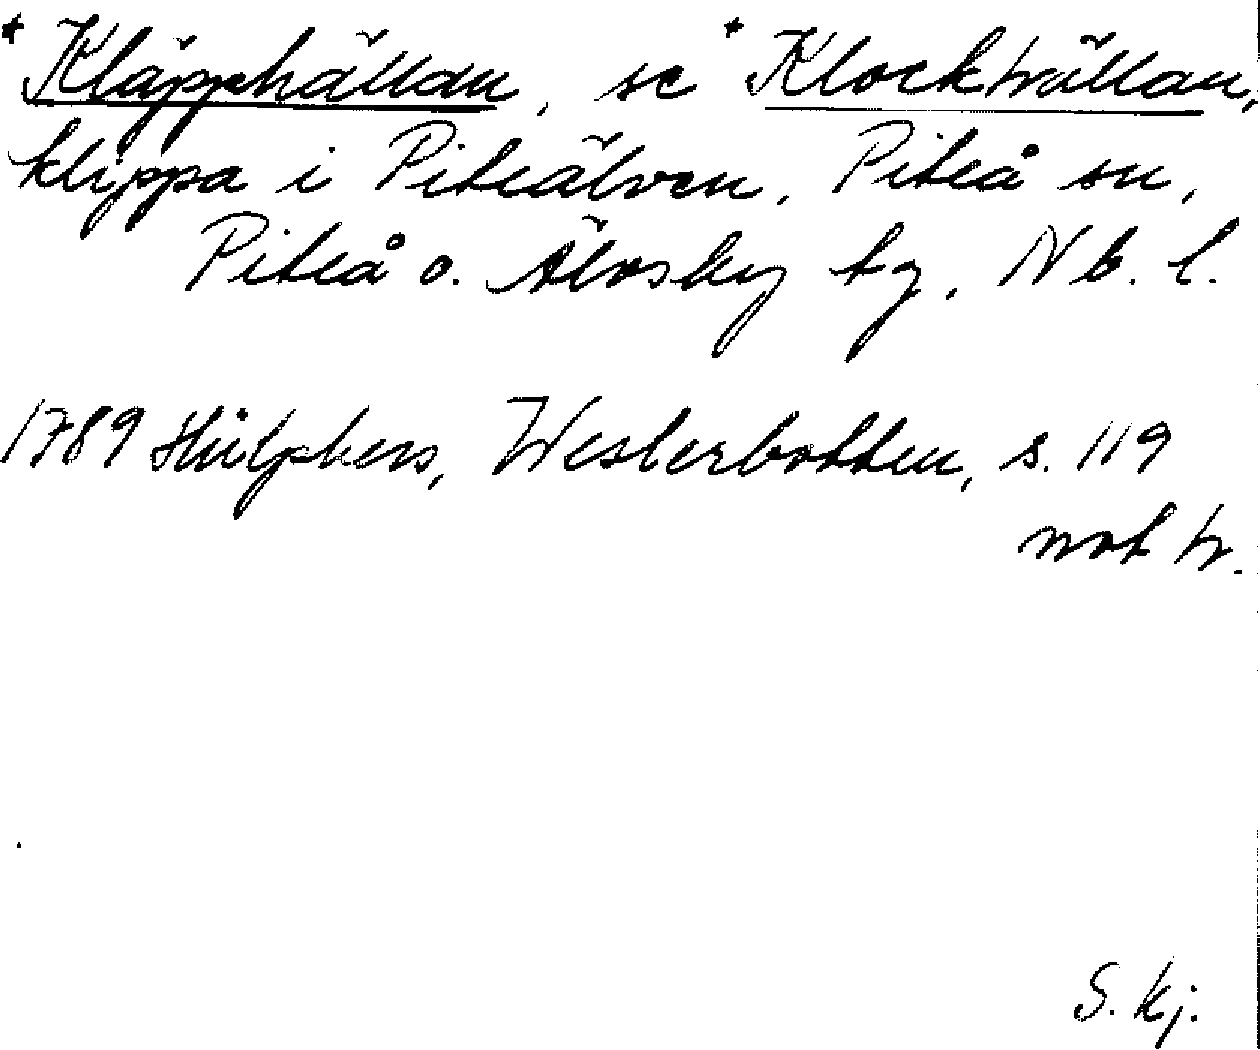 *Kläpphällan, se *Klockhällan,
klippa i Piteälven, Piteå sn,
Piteå o. Älvsby tg, Nb. l.
1789 Hülphers, Westerbotten, s. 119
not h.
S. Kj.